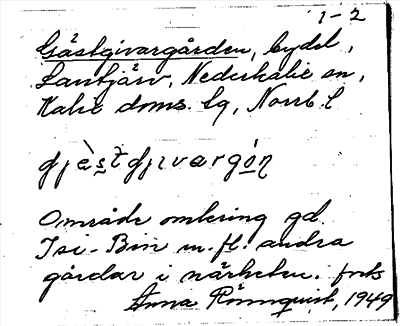 1-2
Gästgivargården, bydel,
Lantjärv, Nederkalix sn,
Kalix doms. lg, Norrb. l
gjæstgjivargón
Område omkring gd.
Isi-Bin m. fl. andra
gårdar i närheten. forts
Anna Rönnquist, 1949